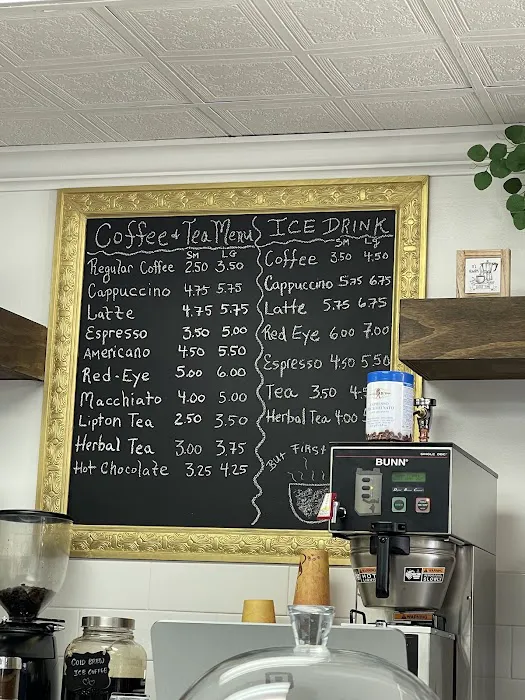 Coffee & Tea Menu
SM LG
Regular Coffee 2.50 3.50
Cappuccino 4.75 5.75
Latte 4.75 5.75
Espresso 3.50 5.00
Americano 4.50 5.50
Red-Eye 5.00 6.00
Macchiato 4.00 5.00
Lipton Tea 2.50 3.50
Herbal Tea 3.00 3.75
Hot Chocolate 3.25 4.25
ICE DRINK
SM LG
Coffee 3.50 4.50
Cappuccino 5.75 6.75
Latte 5.75 6.75
Red Eye 6.00 7.00
Espresso 4.50 5.50
Tea 3.50
Herbal Tea 4.00
But FIRST
BUNN
COLD BREW
ICE COFFEE